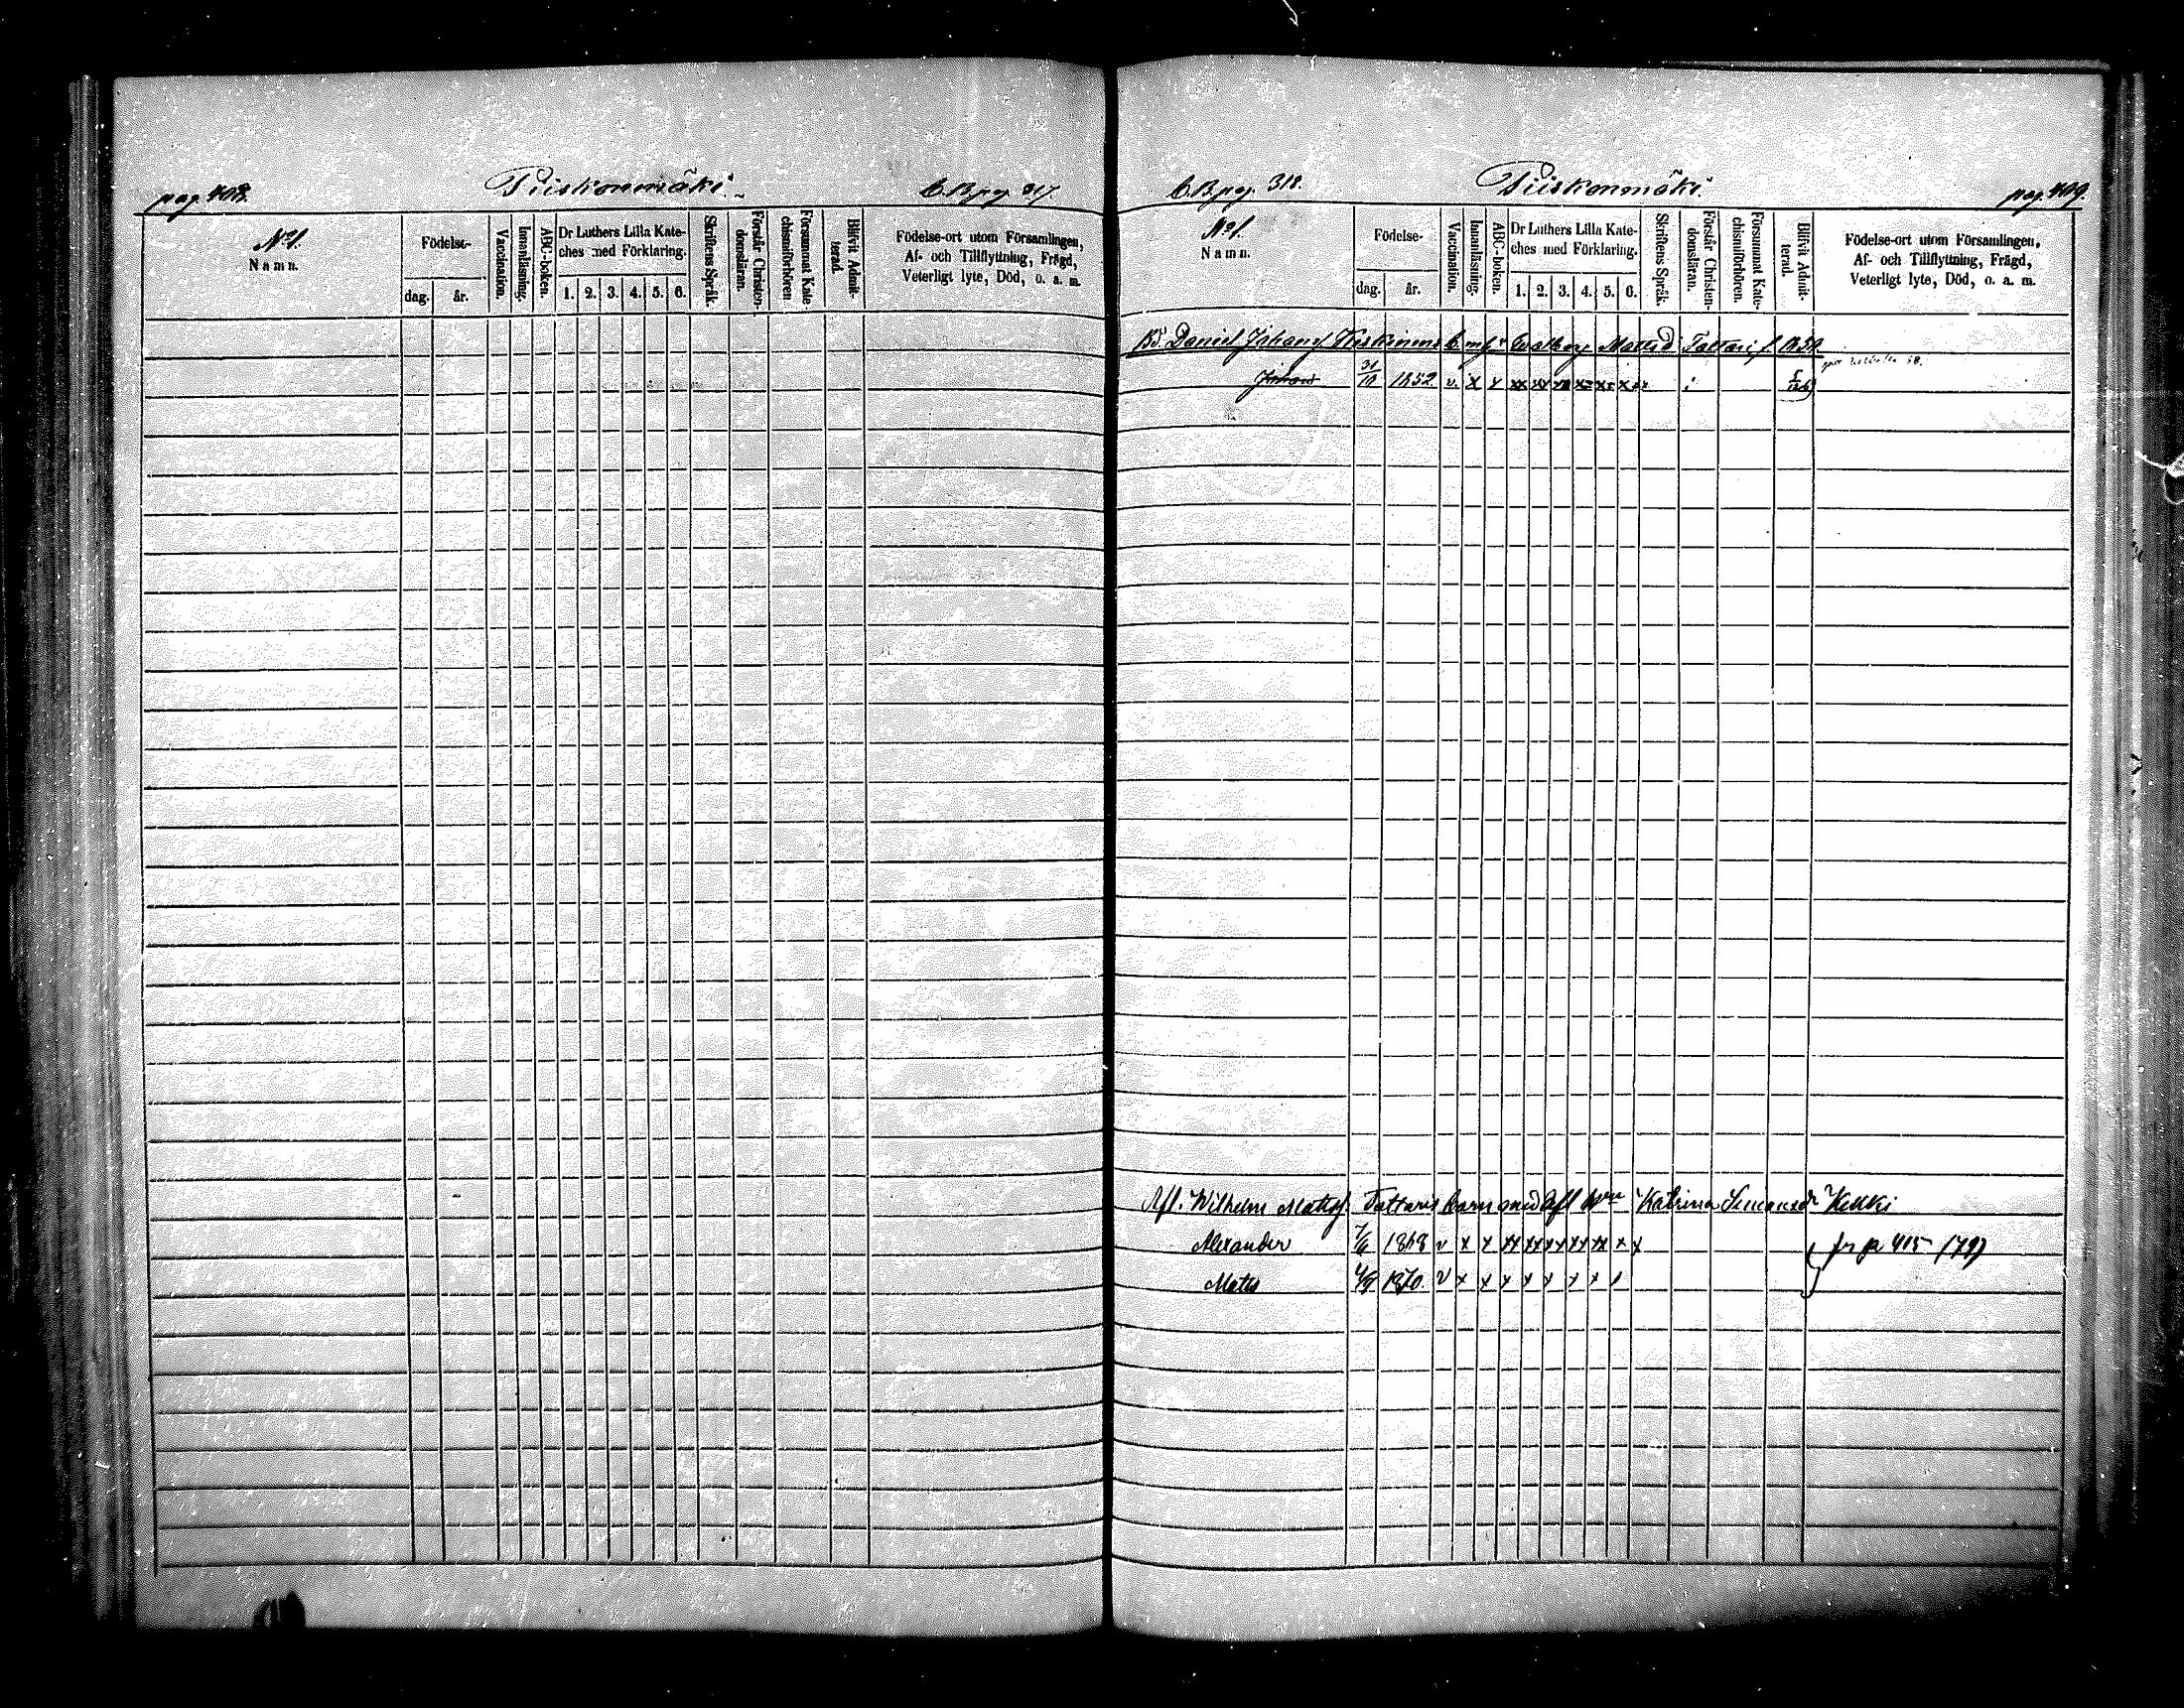 pag. 408. Piiskonmäki. C.B. pag. 317.
No 1.
Namn.
Födelse-
dag. år.
Vaccination.
Innanläsning.
ABC-boken.
Dr Luthers Lilla Kate-
ches med Förklaring.
1. 2. 3. 4. 5. 6.
Skriftens Språk.
Förstår Christen-
domsläran.
Försummat Kate-
chismiförhören
Blifvit Admit-
terad.
Födelse-ort utom Församlingen,
Af- och Tillflyttning, Frägd,
Veterligt lyte, Död, o. a. m.
C.B. pag. 318. Piiskonmäki. pag. 409.
No 1.
Namn.
Födelse-
dag. år.
Vaccination.
Innanläsning.
ABC-boken.
Dr Luthers Lilla Kate-
ches med Förklaring.
1. 2. 3. 4. 5. 6.
Skriftens Språk.
Förstår Christen-
domsläran.
Försummat Kate-
chismiförhören.
Blifvit Admit-
terad.
Födelse-ort utom Församlingen,
Af- och Tillflyttning, Frägd,
Veterligt lyte, Död, o. a. m.
Daniel Johansf. Walborg Mattsd. Tattari f.
Johan 31/10 1852 v x x xx xx
Afl. Wilhelm Mattsf. Tattaris barn med Afl. Katrina Simonsdr Kekki
Alexander 1868 v x x xx xx xx xx xx x x fr p 415 (79)
Matts 1870 v x x x x x x